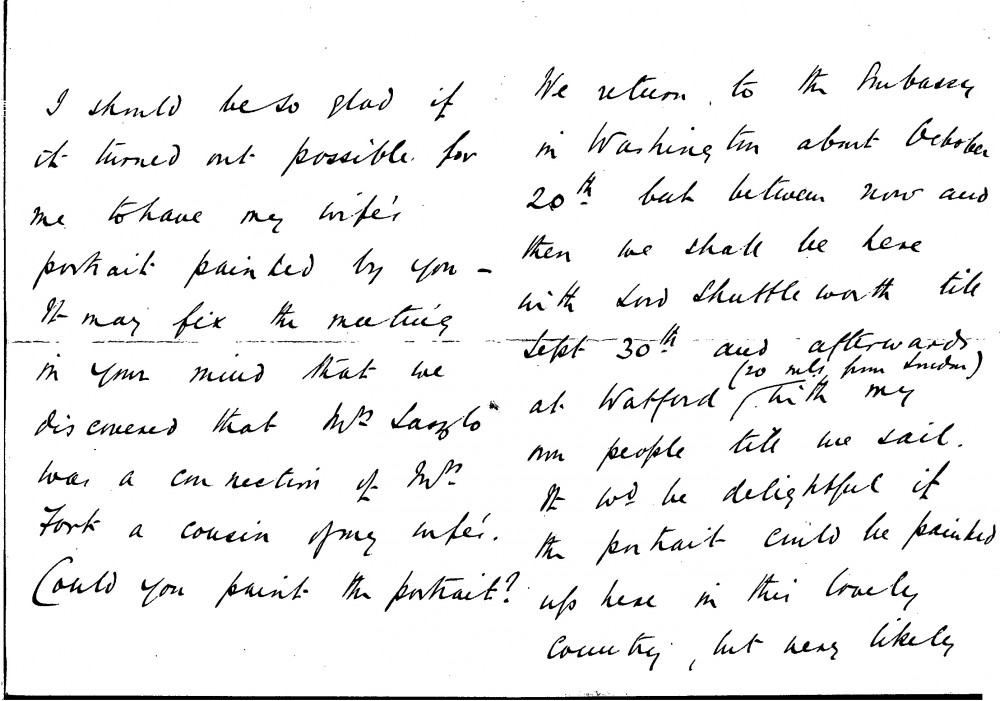 I should be so glad if
it turned out possible for
me to have my wife's
portrait painted by you –
It may fix the meeting
in your mind that we
discovered that Mrs Laszlo
was a connection of Mrs
Fort a cousin of my wife's.
Could you paint the portrait?
We return to the Embassy
in Washington about October
20th but between now and
then we shall be here
with Lord Shuttleworth till
Sept 30th and afterwards
(20 mls from London)
at Watford with my
own people till we sail.
It wd be delightful if
the portrait could be painted
up here in this lovely
country, but very likely